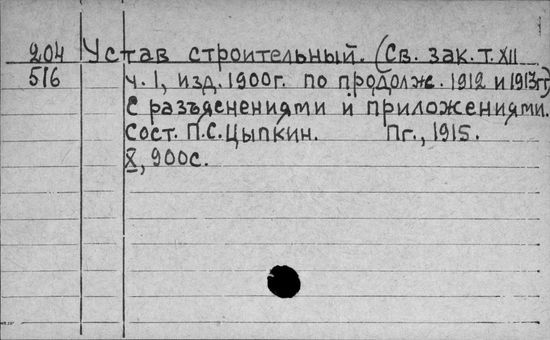 204 Устав строительный. (Св. зак. т. XII
516 ч. 1, изд. 1900г. по продолж. 1912 и 1913гг)
С разъяснениями и приложениями.
Сост. П.С. Цыпкин. Пг., 1915.
X, 900с.